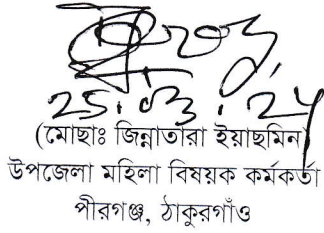 25.03.24
(মোছাঃ জিন্নাতারা ইয়াছমিন)
উপজেলা মহিলা বিষয়ক কর্মকর্তা
পীরগঞ্জ, ঠাকুরগাঁও